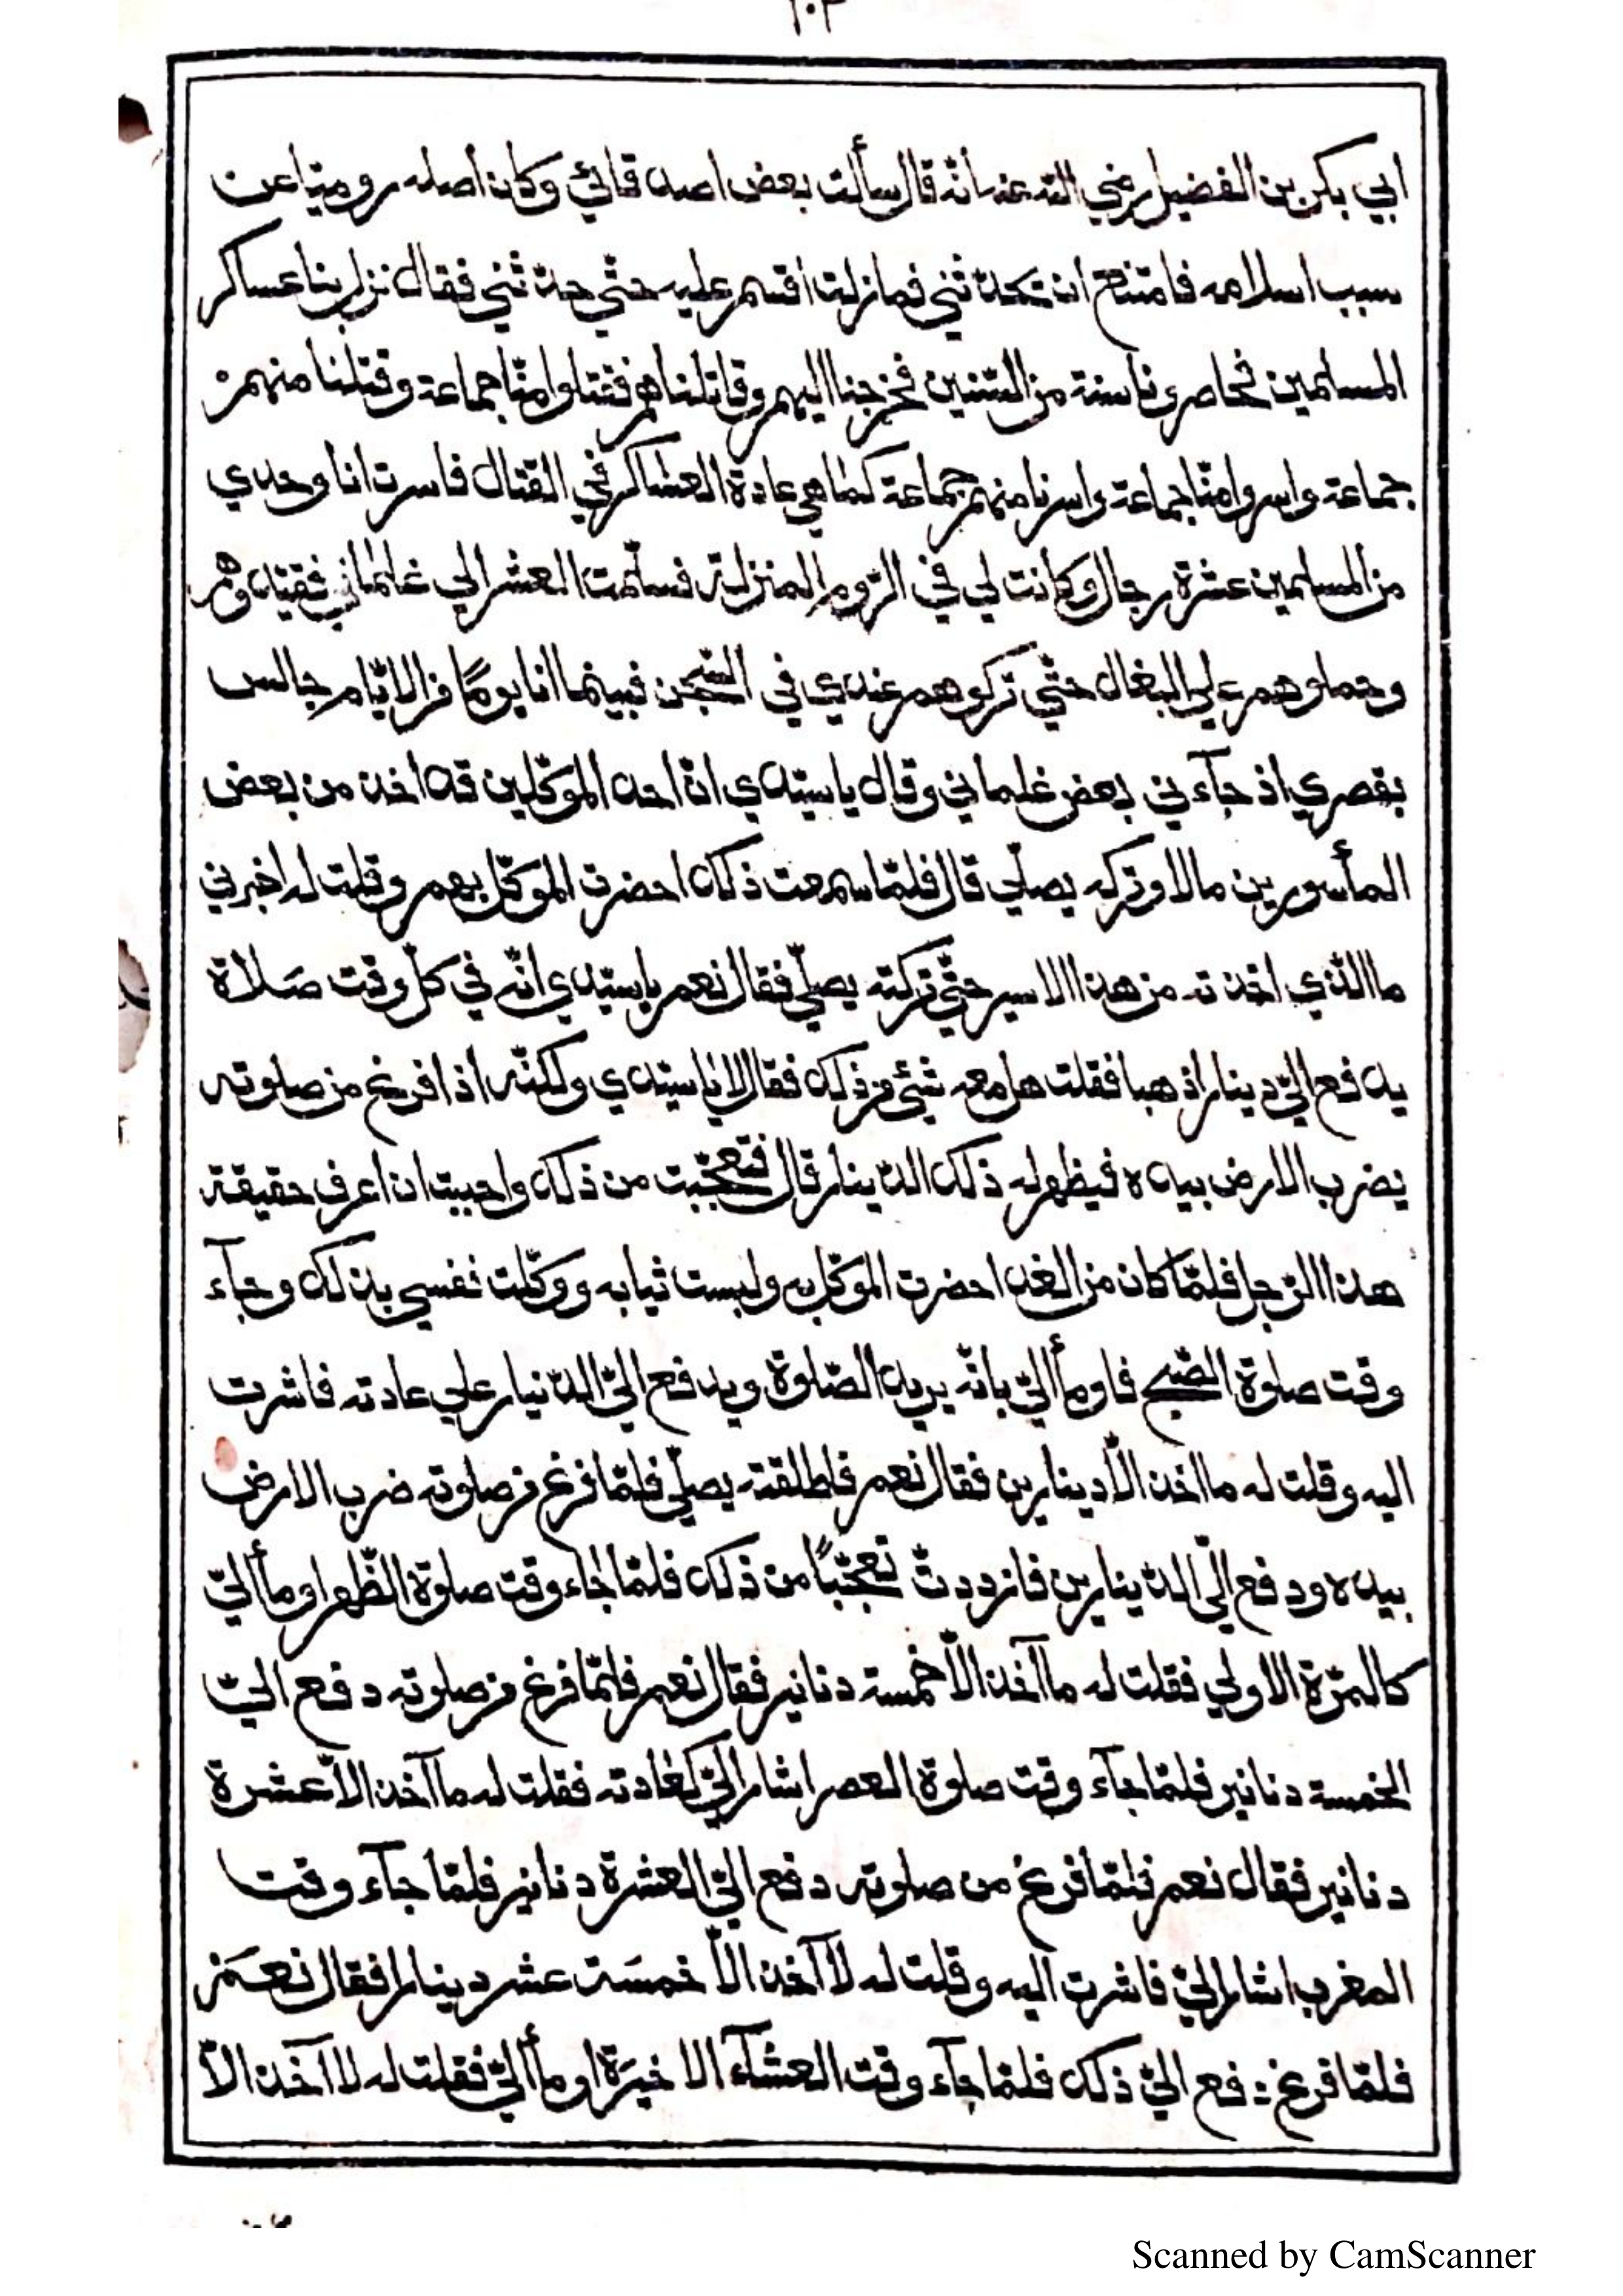 ابي بكر بن الفضيل رضي الله عنه انّه قال سألت بعض اصدقائي وكان اصله روميّا عن
سبب اسلامه فامتنع ان تحدّثني فما زلت اقسم عليه حتّي حدّثني فقال نزل بنا عساكر
المسلمين فحاصرونا سنة من السّنين فخرجنا اليهم وقاتلناهم فقتلوا منّا جماعة وقتلنا منهم
جماعة واسروا منّا جماعة واسرنا منهم جماعة كما هي عادة العساكر في القتال فاسرت انا وحدي
من المسلمين عشرة رجال وكانت لي في الرّوم المنزلة فسلّمت العشر الي غلماني فقيّدوهم
وحملوهم علي البغال حتّي تركوهم عندي في السّجن فبينما انا يومًا من الايّام جالس
بقصري اذ جآءني بعض غلماني وقال يا سيّدي انّ احد الموكّلين قد اخذ من بعض
المأسورين مالا وتركه يصلّي قال فلمّا سمعت ذلك احضرت الموكّل بهم وقلت له اخبرني
ما الّذي اخذته من هذا الاسير حتّي تركته يصلّي فقال نعم يا سيّدي انّه في كلّ وقت صلاة
يدفع اليّ دينارا ذهبا فقلت هل معه شئ من ذلك فقال لا يا سيّدي ولكنّه اذا فرغ من صلوته
يضرب الارض بيده فيظهر له ذلك الدّينار قال فتعجّبت من ذلك واحببت ان اعرف حقيقة
هذا الرّجل فلمّا كان من الغد احضرت الموكّل به ولبست ثيابه ووكّلت نفسي بذلك وجآء
وقت صلوة الصّبح فاومأ اليّ بانّه يريد الصّلوة ويدفع اليّ الدّنيار علي عادته فاشرت
اليه وقلت له ما اخذ الّا دينارين فقال نعم فاطلقته يصلّي فلمّا فرغ من صلوته ضرب الارض
بيده ودفع اليّ الدّينارين فازددتّ تعجّبًا من ذلك فلمّا جاء وقت صلوة الظّهر اومأ اليّ
كالمرّة الاولي فقلت له ما آخذ الّا خمسة دنانير فقال نعم فلمّا فرغ من صلوته دفع اليّ
الخمسة دنانير فلمّا جآء وقت صلوة العصر اشار اليّ كعادته فقلت له ما آخذ الّا عشرة
دنانير فقال نعم فلمّا فرغ من صلوته دفع اليّ العشرة دنانير فلمّا جآء وقت
المغرب اشار اليّ فاشرت اليه وقلت له لا آخذ الّا خمسَة عشر دينارا فقال نعَم
فلمّا فرغ دفع اليّ ذلك فلمّا جآء وقت العشآء الاخيرَة اومأ اليّ فقلت له لا آخذ الّا
Scanned by CamScanner